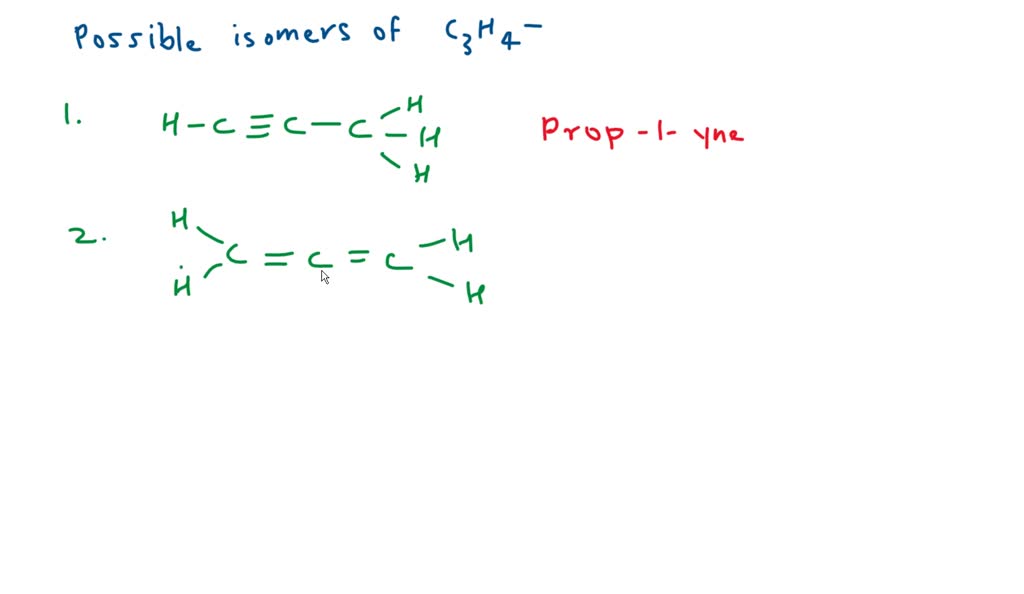 Possible isomers of C3H4 -
1. H-C≡C-C-H Prop-1-yne
H
H
2. H
H C=C=C H
H